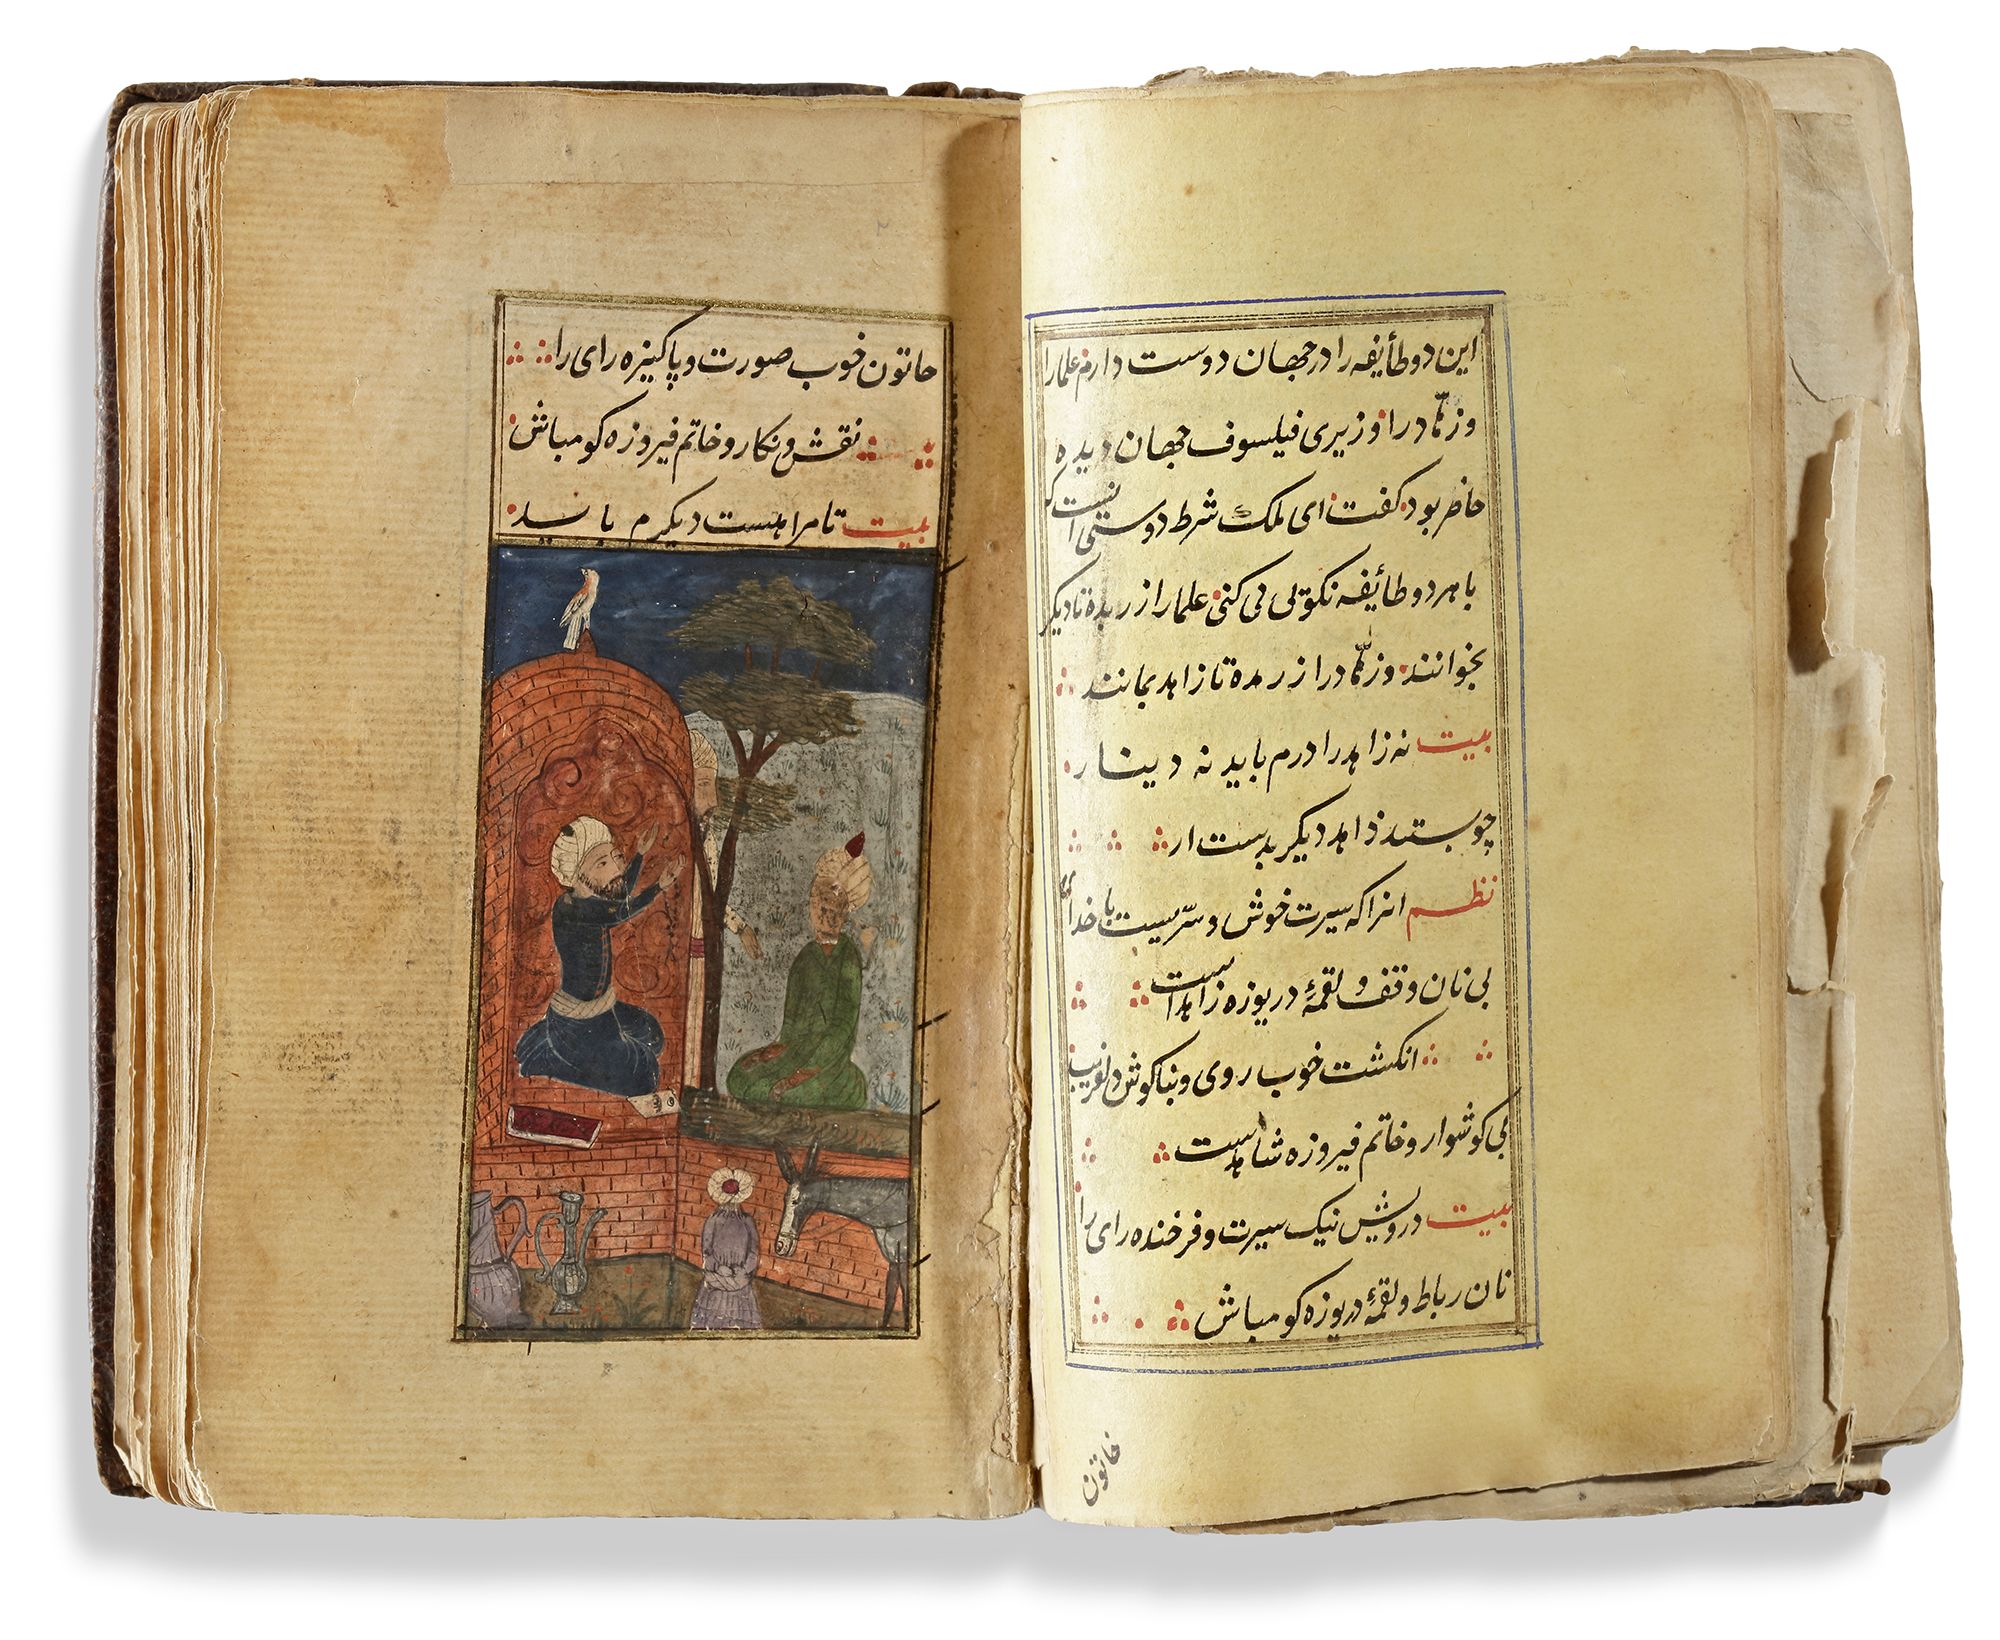 این دو طائفه را در جهان دوست دارم علما را
و زهاد را وزیری فیلسوف جهان دیده
حاضر بود گفت ای ملک شرط دوستی انست که
با هر دو طائفه نکوئی کنی علما را زر بده تا دیگر
بخوانند و زهاد را زر مده تا زاهد بمانند
بیت نه زاهد را درم باید نه دینار
چو بستد زاهد دیگر بدست ار
نظم انرا که سیرت خوش و سریست با خدای
بی نان وقف و لقمهٔ دریوزه زاهد است
انکشت خوب روی و بناکوش دلفریب
بی کوشوار و خاتم فیروزه شاهد است
بیت درویش نیک سیرت و فرخنده رای را
نان رباط و لقمهٔ دریوزه کو مباش
خاتون
خاتون خوب صورت و پاکیزه رای را
نقش و نکار و خاتم فیروزه کو مباش
بیت تا مرا هست دیکرم باید